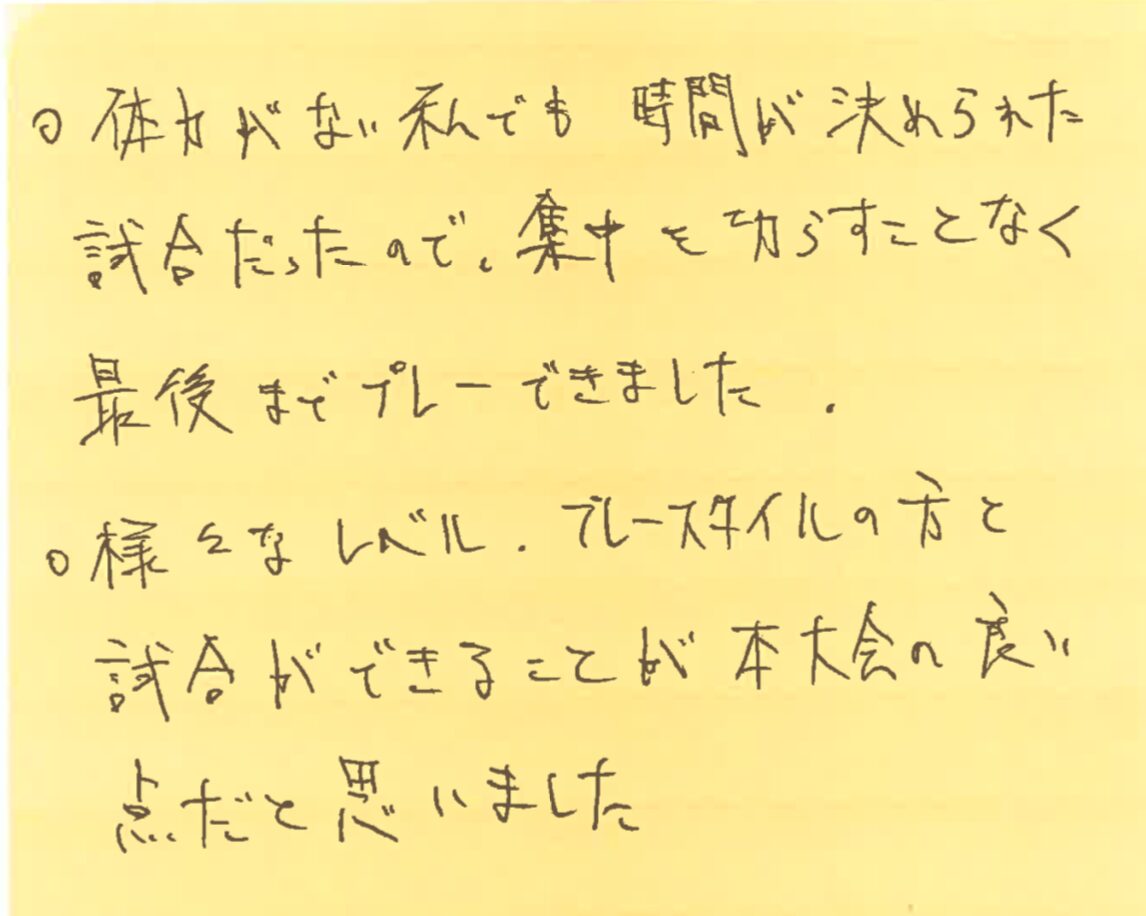 ○ 体力がない私でも 時間が決められた
試合だったので、集中を切らすことなく
最後までプレーできました.
○ 様々なレベル. プレースタイルの方と
試合ができることが本大会の良い
点だと思いました